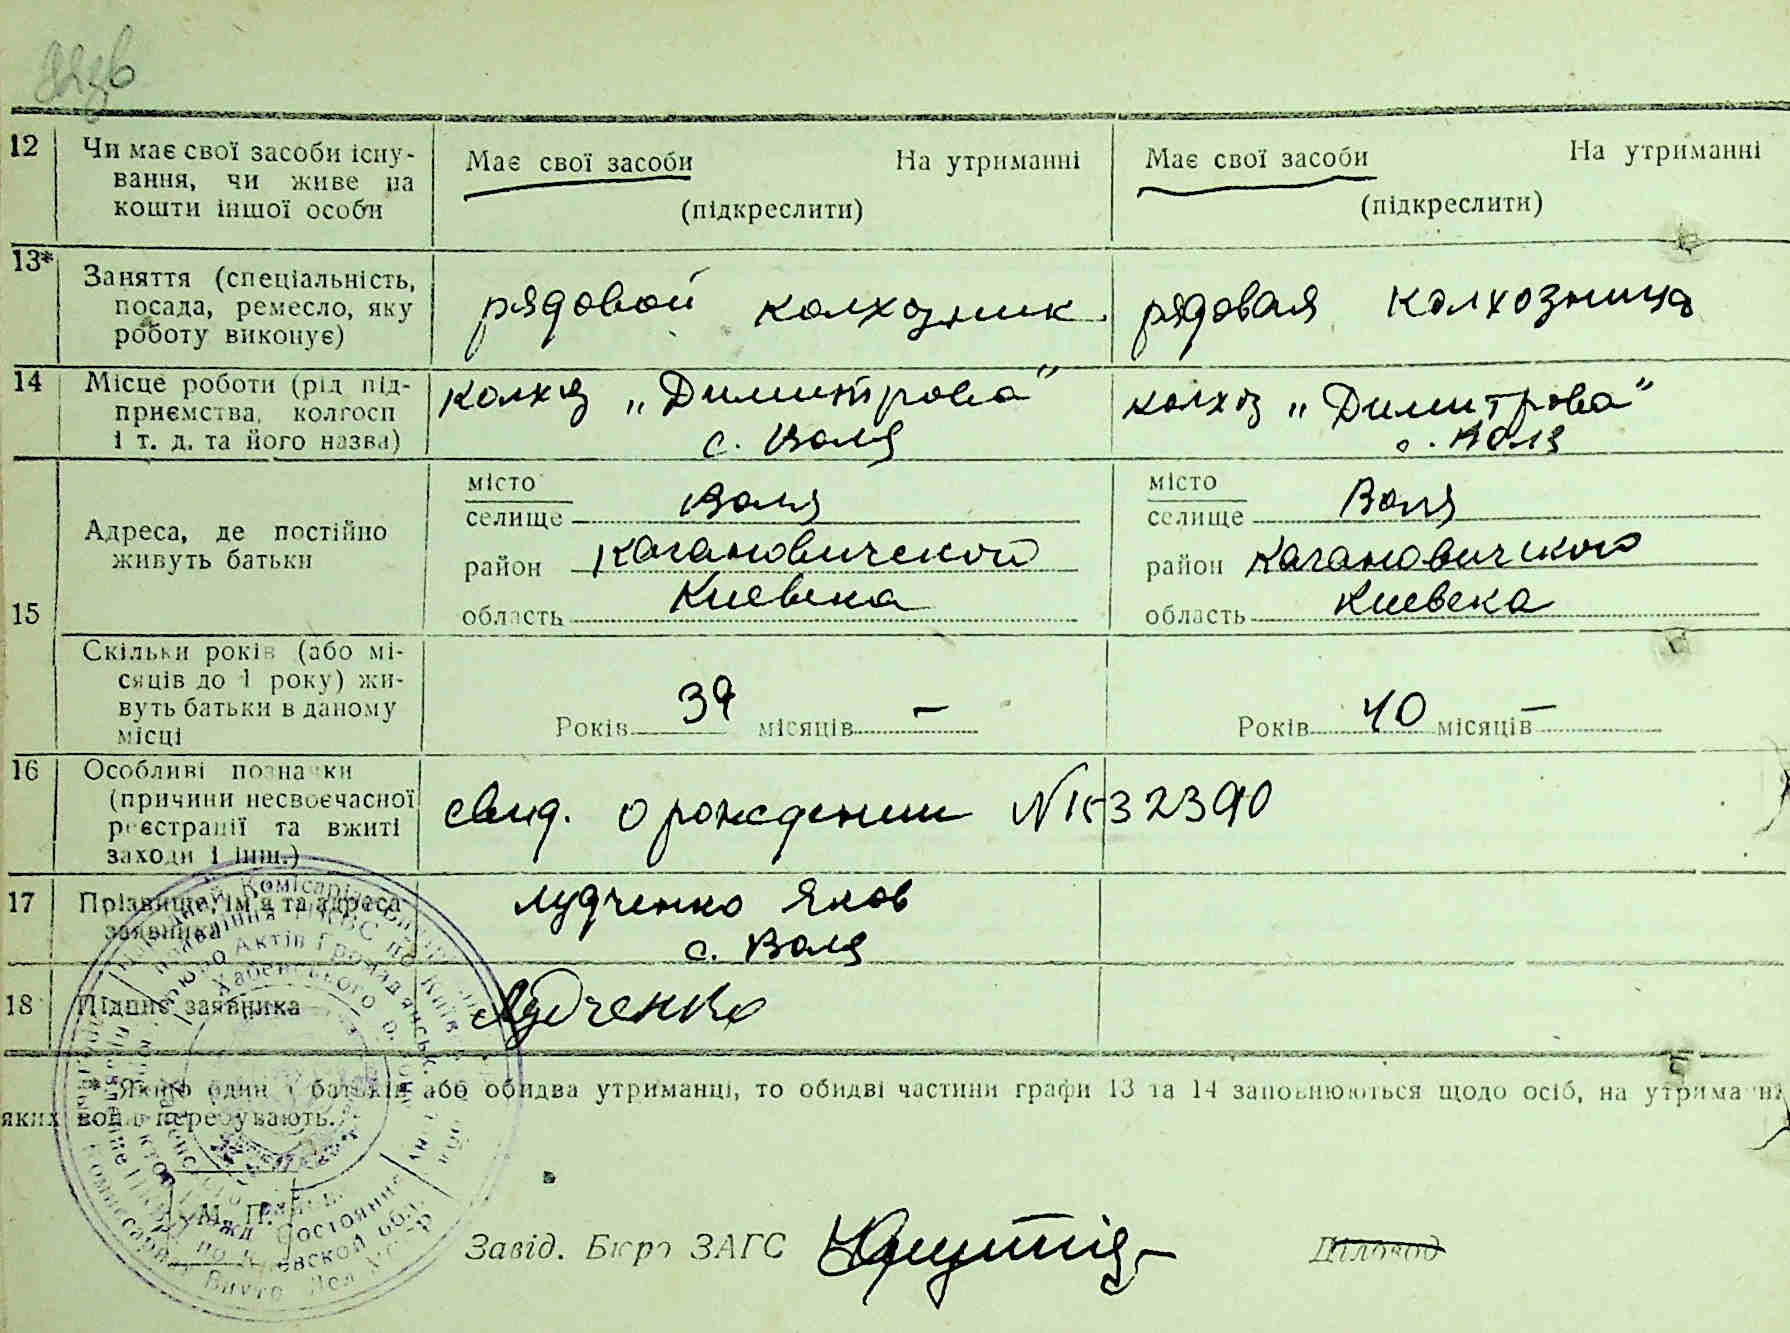 12 Чи має свої засоби існу-
вання, чи живе на
кошти іншої особи
Має свої засоби На утриманні
(підкреслити)
Має свої засоби На утриманні
(підкреслити)
13* Заняття (спеціальність,
посада, ремесло, яку
роботу виконує)
рядовой колхозник
рядовая колхозница
14 Місце роботи (рід під-
приємства, колгосп
і т. д. та його назва)
колхоз „Димитрова"
с. Воля
колхоз „Димитрова"
с. Воля
15 Адреса, де постійно
живуть батьки
місто
селище Воля
район Кагановичский
область Киевска
місто
селище Воля
район Кагановичского
область Киевска
Скільки років (або мі-
сяців до 1 року) жи-
вуть батьки в даному
місці
Років 39 місяців —
Років 40 місяців —
16 Особливі позначки
(причини несвоєчасної
реєстрації та вжиті
заходи і інш.)
свид. о рождении №32390
17 Прізвище, ім'я та адреса
заявника
Лудченко Яков
с. Воля
18 Підпис заявника
Лудченко
* Якщо один з батьків або обидва утриманці, то обидві частини графи 13 та 14 заповнюються щодо осіб, на утриманні
яких вони перебувають.
М. П.
Завід. Бюро ЗАГС
Діловод